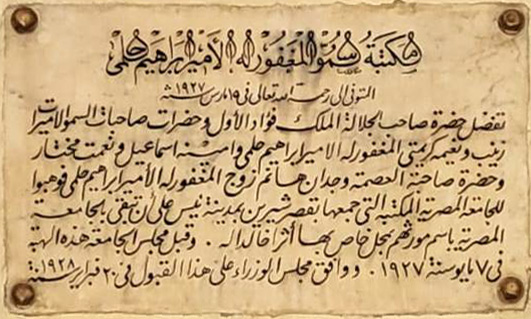 مكتبة سمو المغفور له الأمير إبراهيم حلمى
المتوفى الى رحمة الله تعالى فى ١٩ مارس سنة ١٩٢٧
تفضل حضرة صاحب الجلالة الملك فؤاد الأول وحضرات صاحبات السمو الأميرات
زينب ونعيمه كريمتى المغفور له الامير ابراهيم حلمى وامينه اسماعيل ونعمت مختار
وحضرة صاحبة العصمة وجدان هانم زوج المغفور له الأمير ابراهيم حلمى فوهبوا
للجامعة المصرية المكتبة التى جمعها بقصر شيرين بمدينة نيس على أن تبقى بالجامعة
المصرية باسم مورثهم بمحل خاص بها أثرا خالدا له . وقبل مجلس الجامعة هذه الهبة
فى ٧ مايو سنة ١٩٢٧ . ووافق مجلس الوزراء على هذا القبول فى ٢٠ فبراير سنة ١٩٢٨